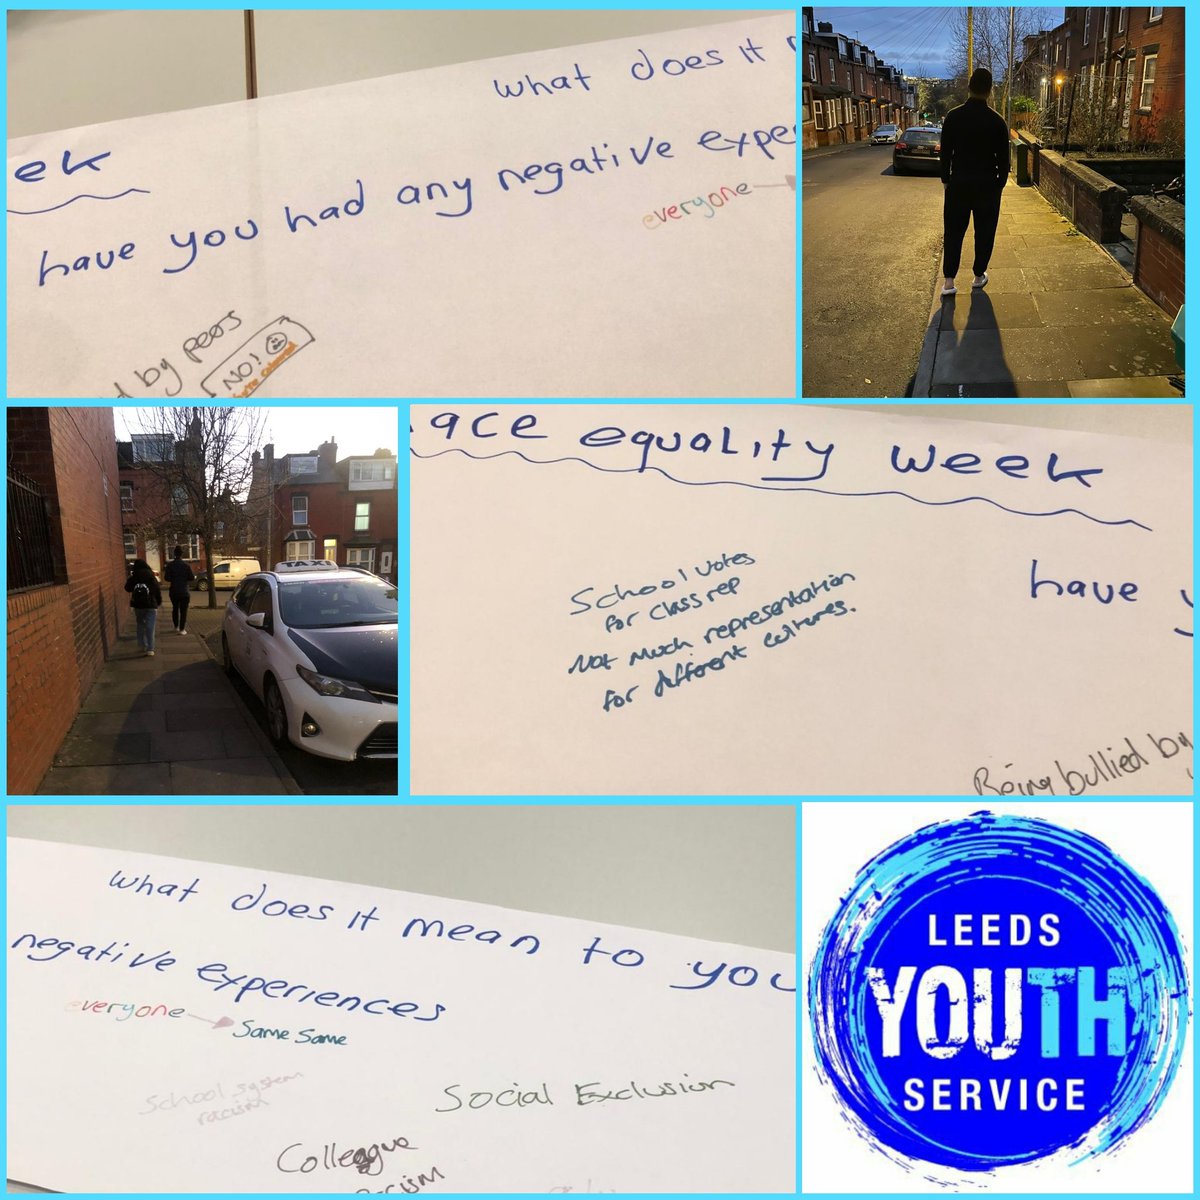 what does it
ek
have you had any negative expe
everyone
d by peers
NO!
TAXI
ace equality week
School votes
for class rep
Not much representation
for different cultures.
have y
Being bullied by
what does it mean to you
negative experiences
everyone
Same Same
School system
racism
Social Exclusion
Colleague
racism
LEEDS
YOUTH
SERVICE